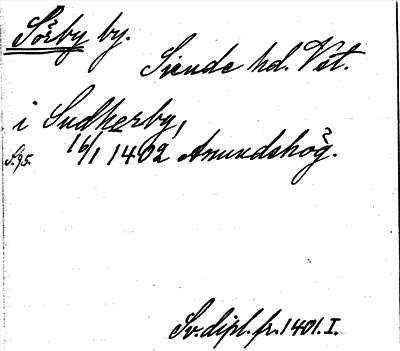 Sörby by.
Siende hd. Vst.
i Sudherby,
16/1 1402 Anundshög.
Sv. dipl. fr. 1401. I.